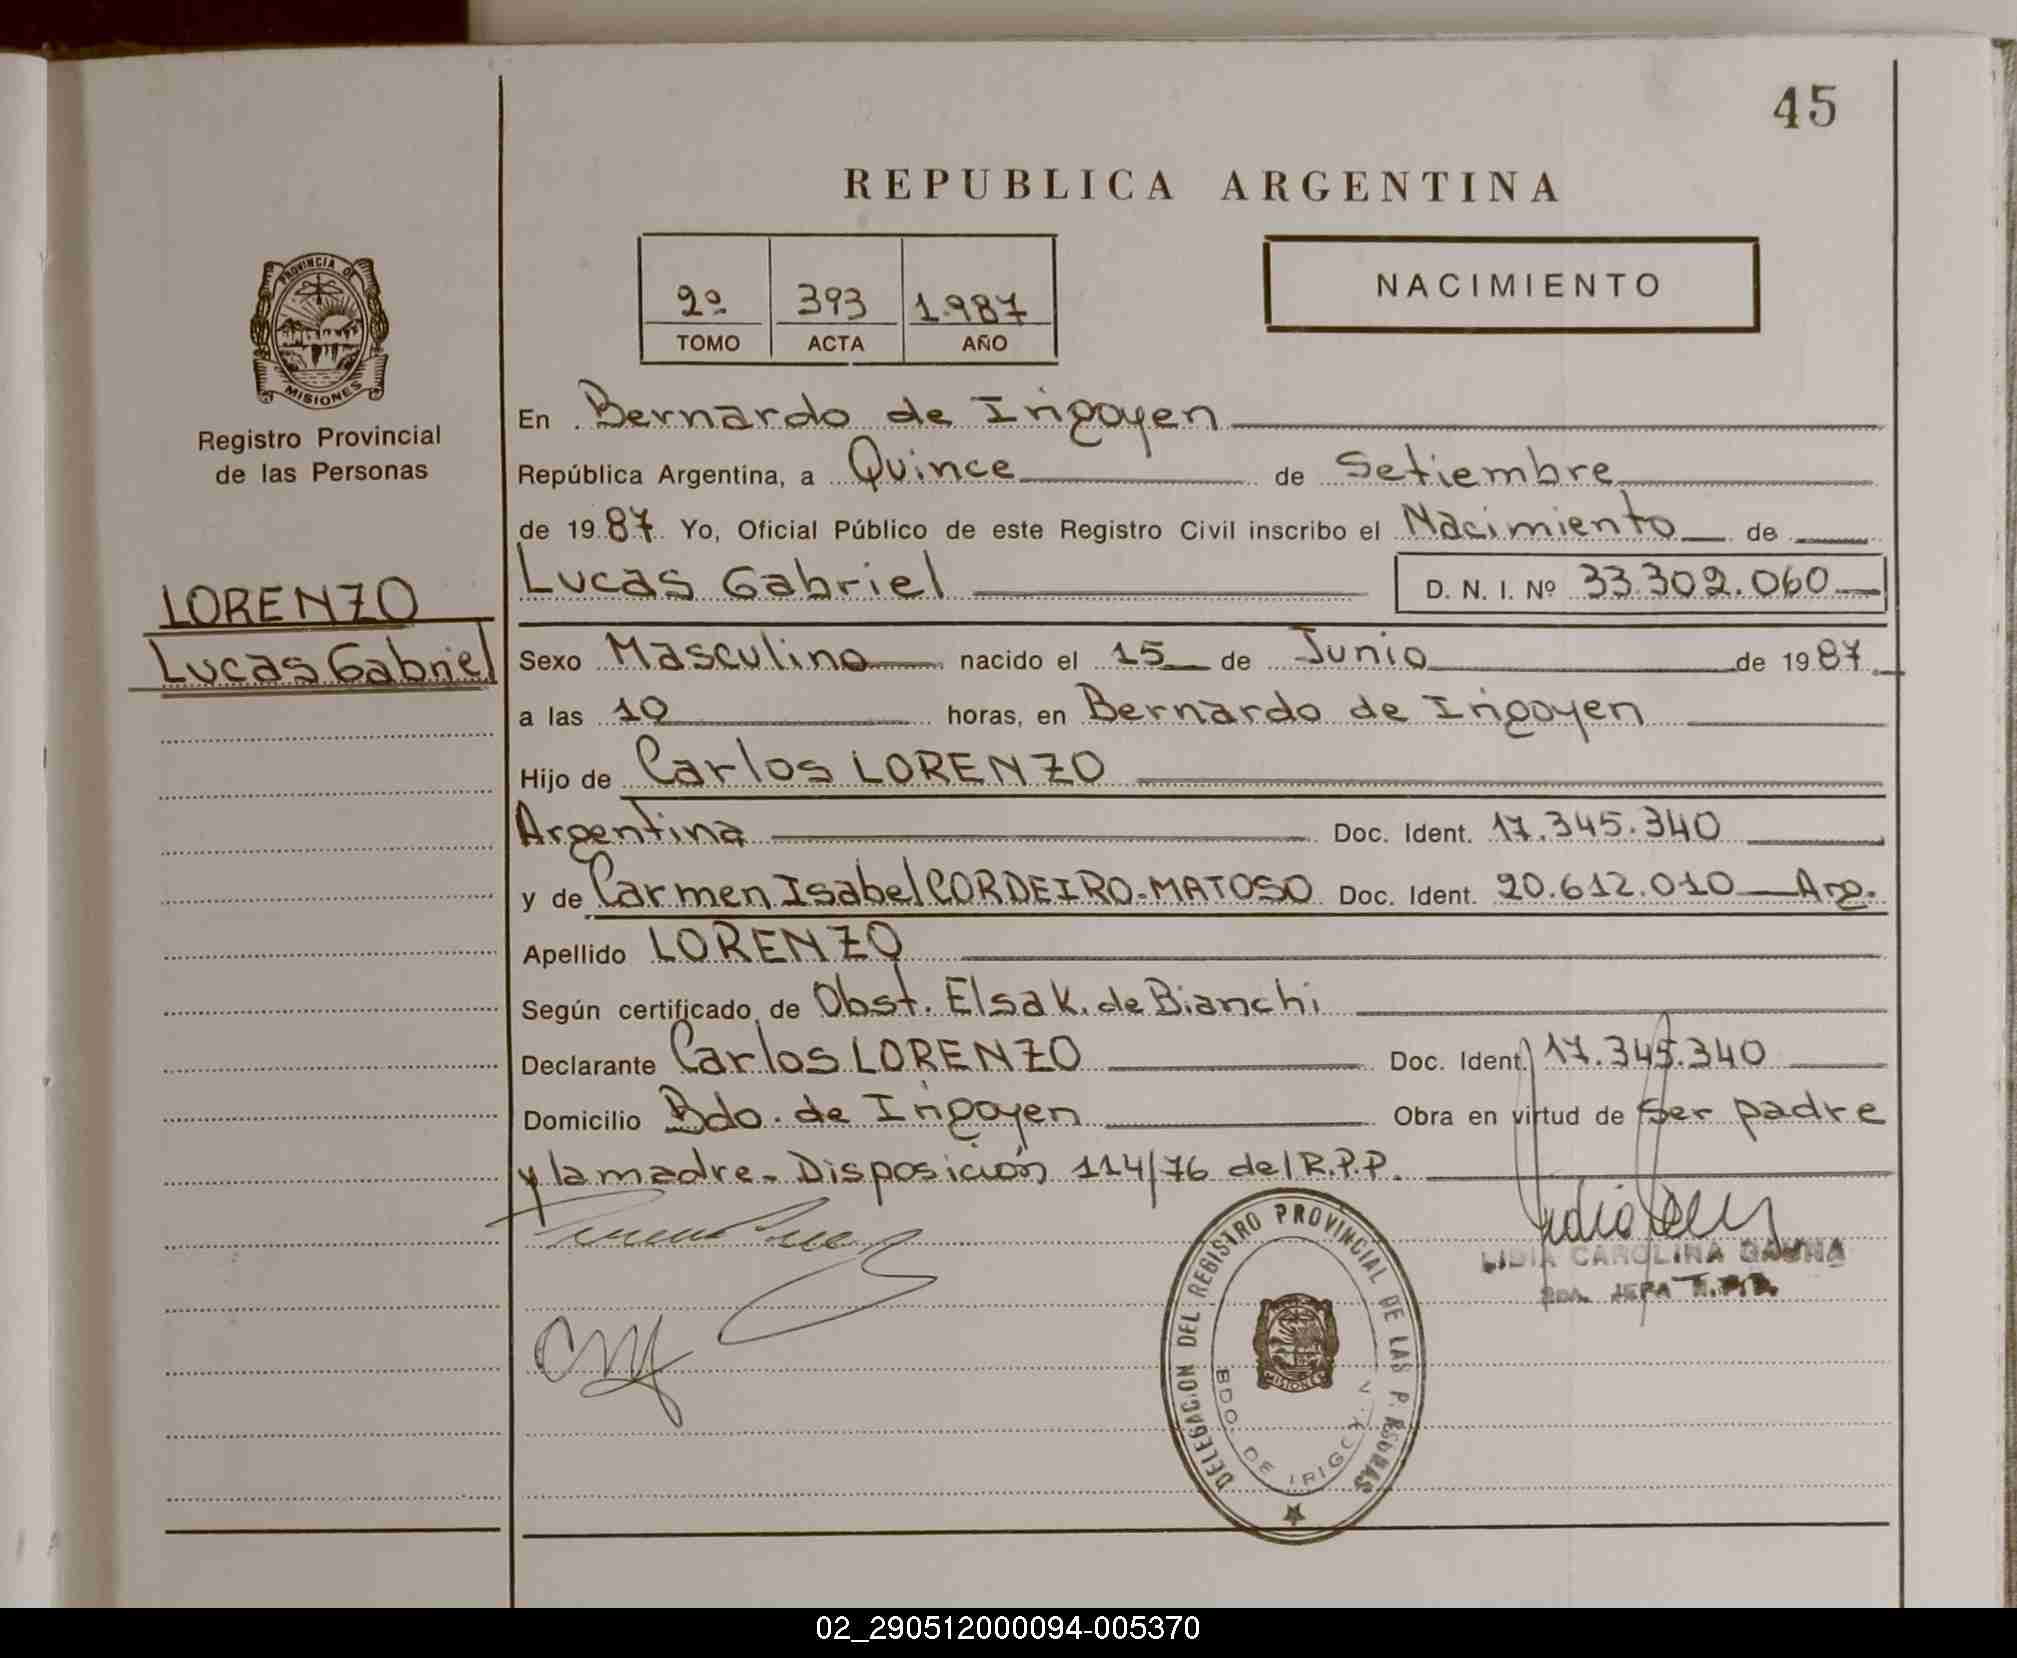 45
REPUBLICA ARGENTINA
2º 393 1.987
TOMO ACTA AÑO
NACIMIENTO
PROVINCIA DE
MISIONES
Registro Provincial
de las Personas
LORENZO
Lucas Gabriel
En Bernardo de Irigoyen
República Argentina, a Quince de Setiembre
de 1987 Yo, Oficial Público de este Registro Civil inscribo el Nacimiento de
Lucas Gabriel D. N. I. Nº 33.302.060
Sexo Masculino nacido el 15 de Junio de 1987
a las 10 horas, en Bernardo de Irigoyen
Hijo de Carlos LORENZO
Argentina Doc. Ident. 17.345.340
y de Carmen Isabel CORDEIRO-MATOSO Doc. Ident. 20.612.010 Arg.
Apellido LORENZO
Según certificado de Obst. Elsa K. de Bianchi
Declarante Carlos LORENZO Doc. Ident. 17.345.340
Domicilio Bdo. de Irigoyen Obra en virtud de Ser padre
y la madre. Disposición 114/76 del R.P.P.
LIDIA CAROLINA GAUNA
JEFA
DELEGACION DEL REGISTRO PROVINCIAL DE LAS PERSONAS
BDO. DE IRIGOYEN
MISIONES
02_290512000094-005370